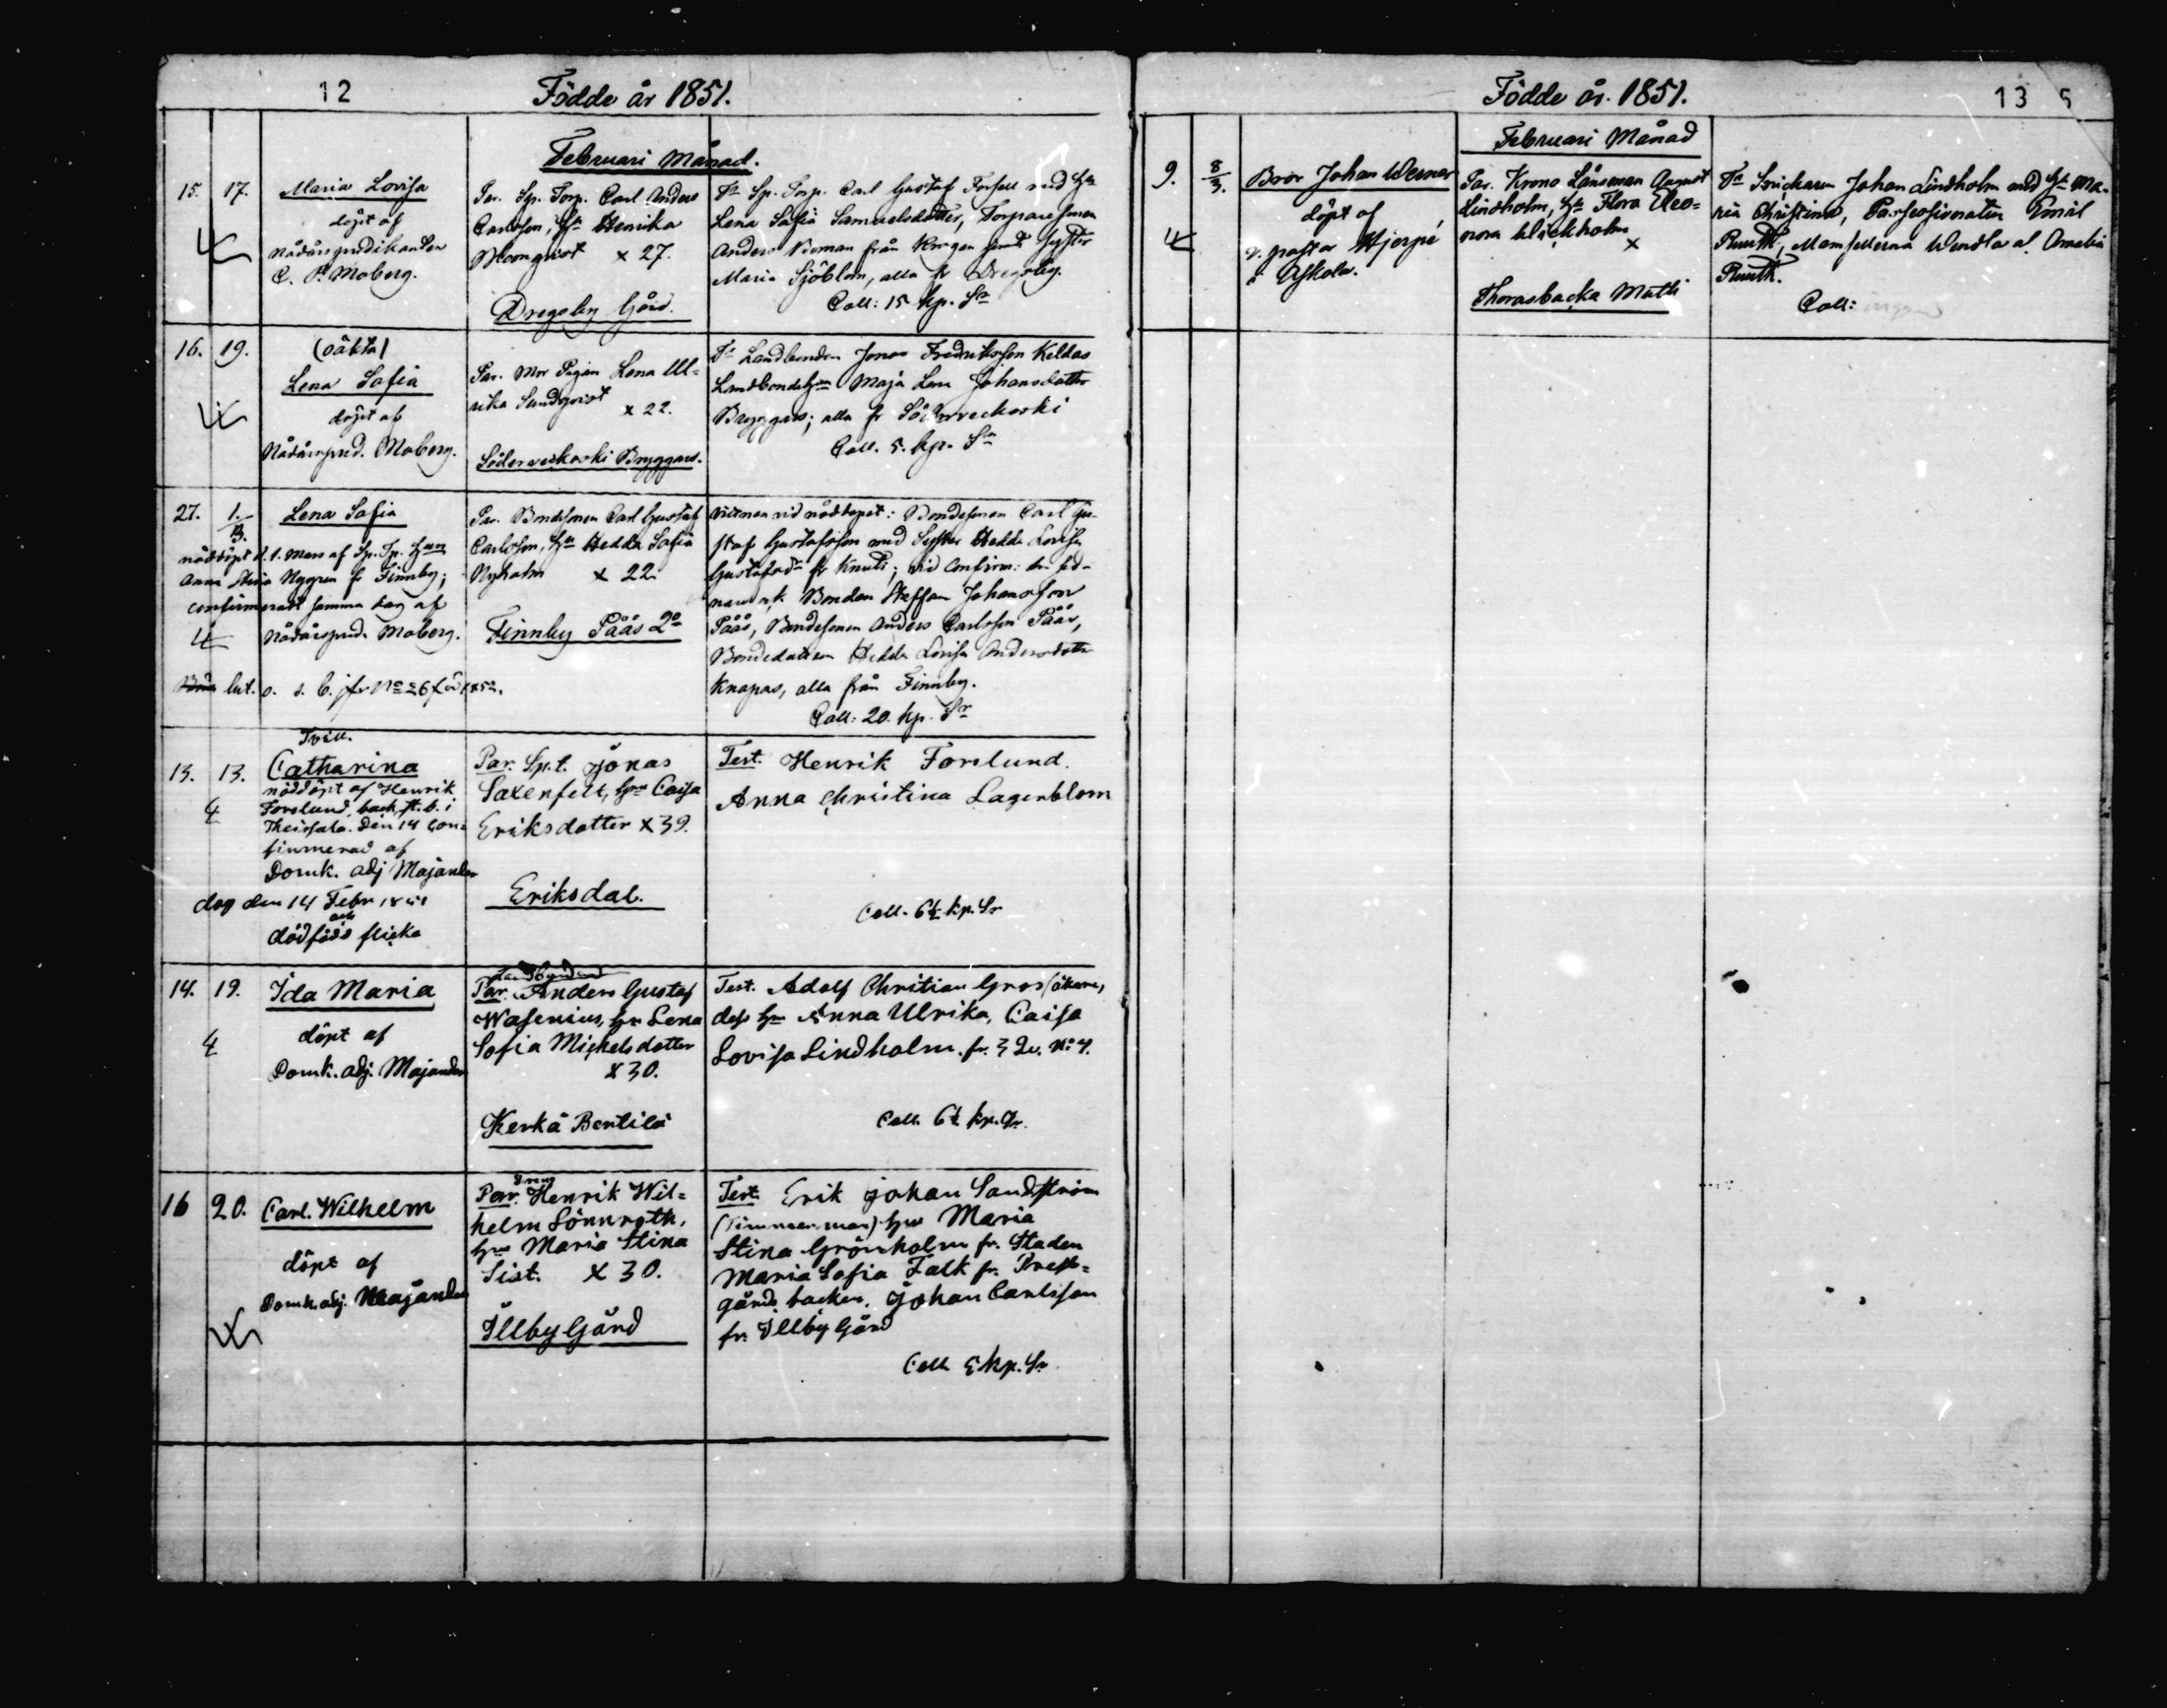 12
Födde år 1851.
Februari Månad.
15. 17. Maria Lovisa
döpt af
nådårspredikanten
C. P. Moberg.
Par. Sp. Torp. Carl Anders
Carlsson, Hu Henrika
Blomqvist x 27.
Dregsby Gård.
Ts Sp. Torp. Carl Gustaf Forsell med Hu
Lena Safia Samuelsdotter, Torparesonen
Anders från samt Syster
Maria Sjöblom, alla fr Dregsby.
Coll: 15 kp. Sr
16. 19. (oäkta)
Lena Safia
döpt af
Nådårspred. Moberg.
Par. Mor Pigan Lena Ul-
rika Sundqvist x 22.
Söderveckoski Bryggars.
Ts Landbonden Jonas Fredriksson Keldas
Landbondehun Maja Lena Johansdotter
Bryggars; alla fr Söderveckoski
Coll. 5. kp. Sr
27. 1./3. Lena Safia
nöddöpt d. 1. Mars af Sp. Tp. Hun
Anna Stina Nygren fr Finnby;
confirmeradt samma dag af
Nådårspred. Moberg.
lut. o. s. b. jfr No 26 föd 1852.
Par. Bondesonen Carl Gustaf
Carlsson, Hu Hedda Safia
Nyholm x 22
Finnby Påås 2o
Vittnen vid nöddopet: Bondesonen Carl Gu-
staf Gustafsson med Syster Hedda Lovisa
Gustafsdr fr Knuts; vid Confirm:
Bonden Staffan Johansson
Påås, Bondesonen Anders Carlsson Påås,
Bondedottren Hedda Lovisa Andersdotter
Knapas, alla från Finnby.
Coll: 20. kp. Sr
Tvill.
13. 13. Catharina
nöddöpt af Henrik
Forslund, back. st. b. i
Theissala. Den 14 Con-
firmerad af
Domk. adj Majander
dog den 14 Febr 1851
och
dödfödd flicka
Par. Sp.t. Jonas
Saxenfelt, hun Caisa
Eriksdotter x 39.
Eriksdal.
Test. Henrik Forslund.
Anna Christina Lagerblom
Coll. 6½ kp. Sr
14. 19. Ida Maria
döpt af
Domk. adj. Majander
Landbonden
Par. Anders Gustaf
Wasenius, hu Lena
Sofia Michelsdotter
x 30.
Kerkå Bertils
Test. Adolf Christian Gros (åkare)
dess hu Anna Ulrika, Caisa
Lovisa Lindholm. fr. 3 Qv. No 4.
Coll. 6½ kp. Sr.
16 20. Carl. Wilhelm
döpt af
Domk. adj. Majander
Dreng
Par. Henrik Wil-
helm Lönnroth,
hu Maria Stina
Sist. x 30.
Illby Gård
Test. Erik Johan Sandström
(Timmerman) hu Maria
Stina Grönholm fr. Staden
Maria Sofia Falk fr. Prest-
gårds backen. Johan Carlsson
fr. Illby Gård
Coll. 5 kp. Sr
Födde år. 1851.
13 5
Februari Månad
9. 8/3. Bror Johan Werner
döpt af
v. pastor Hjerpé
i Askola.
Par. Krono Länsman August
Lindholm, Hu Flora Eleo-
nora Wickholm
x
Thorasbacka Matts
Ts Snickaren Johan Lindholm med Hu Ma-
ria Christina, Emil
Ruuth, Mamsellerna Wendla o Amalia
Ruuth.
Coll: ingen